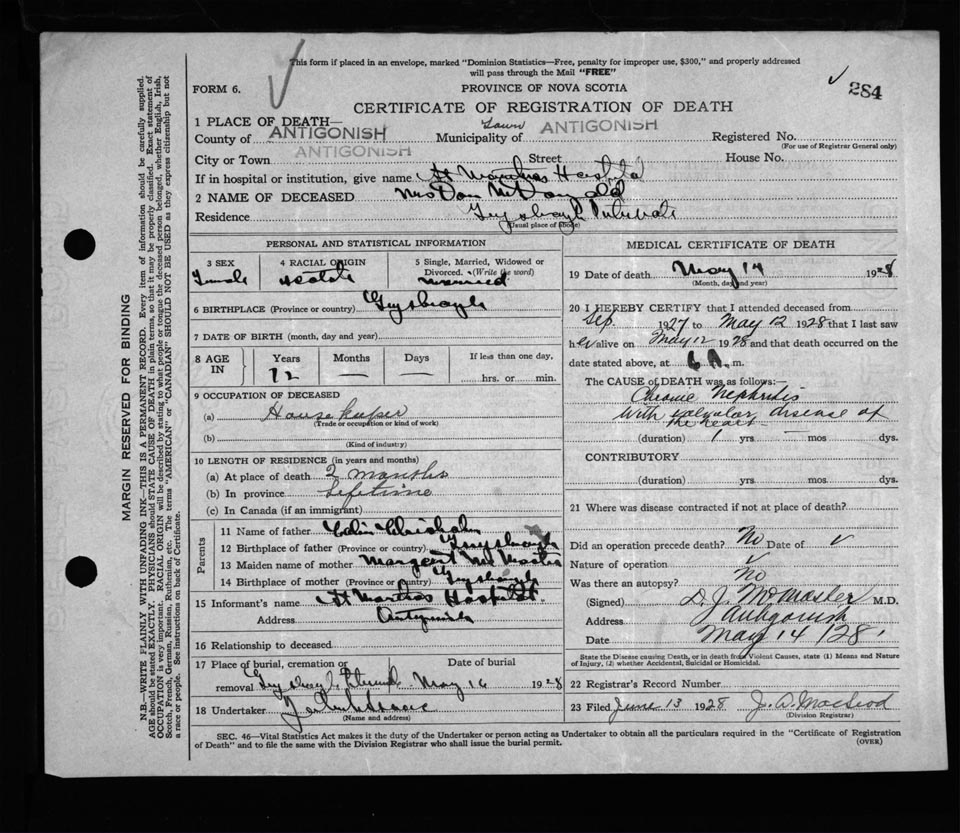 This form if placed in an envelope, marked "Dominion Statistics—Free, penalty for improper use, $300," and properly addressed
will pass through the Mail "FREE"
284
FORM 6.
PROVINCE OF NOVA SCOTIA
CERTIFICATE OF REGISTRATION OF DEATH
1 PLACE OF DEATH—
County of ANTIGONISH Municipality of Town ANTIGONISH Registered No.
(For use of Registrar General only)
City or Town ANTIGONISH Street House No.
If in hospital or institution, give name St Marthas Hospital
2 NAME OF DECEASED Mrs Dan McDonald
Residence Guysboro
(Usual place of abode)
PERSONAL AND STATISTICAL INFORMATION
3 SEX 4 RACIAL ORIGIN 5 Single, Married, Widowed or
Divorced. (Write the word)
Female Scotch Married
6 BIRTHPLACE (Province or country) Guysboro
7 DATE OF BIRTH (month, day and year)
8 AGE IN Years Months Days If less than one day,
72 — — hrs. or min.
9 OCCUPATION OF DECEASED
(a) House keeper
(Trade or occupation or kind of work)
(b)
(Kind of industry)
10 LENGTH OF RESIDENCE (in years and months)
(a) At place of death 2 months
(b) In province Lifetime
(c) In Canada (if an immigrant)
Parents
11 Name of father Colin Chisholm
12 Birthplace of father (Province or country) Guysboro
13 Maiden name of mother Margaret McMaster
14 Birthplace of mother (Province or country) Guysboro
15 Informant's name St Marthas Hospital.
Address Antigonish
16 Relationship to deceased
17 Place of burial, cremation or Date of burial
removal May 16 1928
18 Undertaker
(Name and address)
MEDICAL CERTIFICATE OF DEATH
19 Date of death May 14 1928
(Month, day and year)
20 I HEREBY CERTIFY that I attended deceased from
Sep. 1927 to May 12 1928 that I last saw
her alive on May 12 1928 and that death occurred on the
date stated above, at 6 A. m.
The CAUSE of DEATH was as follows:—
Chronic Nephritis
with valvular disease of
the heart
(duration) 1 yrs — mos dys.
CONTRIBUTORY
(duration) yrs. mos. dys.
21 Where was disease contracted if not at place of death?
Did an operation precede death? No Date of ✓
Nature of operation ✓
Was there an autopsy? No
(Signed) D. J. McMaster M.D.
Address Antigonish
Date May 14 /28.
State the Disease causing Death, or in death from Violent Causes, state (1) Means and Nature
of Injury, (2) whether Accidental, Suicidal or Homicidal.
22 Registrar's Record Number
23 Filed June 13 1928 J. A. MacLeod
(Division Registrar)
SEC. 46—Vital Statistics Act makes it the duty of the Undertaker or person acting as Undertaker to obtain all the particulars required in the "Certificate of Registration
of Death" and to file the same with the Division Registrar who shall issue the burial permit.
(OVER)
MARGIN RESERVED FOR BINDING
N.B.—WRITE PLAINLY WITH UNFADING INK—THIS IS A PERMANENT RECORD. Every item of information should be carefully supplied.
AGE should be stated EXACTLY. PHYSICIANS should STATE CAUSE OF DEATH in plain terms, so that it may be properly classified. Exact statement of
OCCUPATION is very important. RACIAL ORIGIN will be described by stating to what people or tongue the deceased person belonged, whether English, Irish,
Scotch, French, German, Russian, Ruthenian, etc. The terms "AMERICAN" or "CANADIAN" SHOULD NOT BE USED as they express citizenship but not
a race or people. See instructions on back of Certificate.